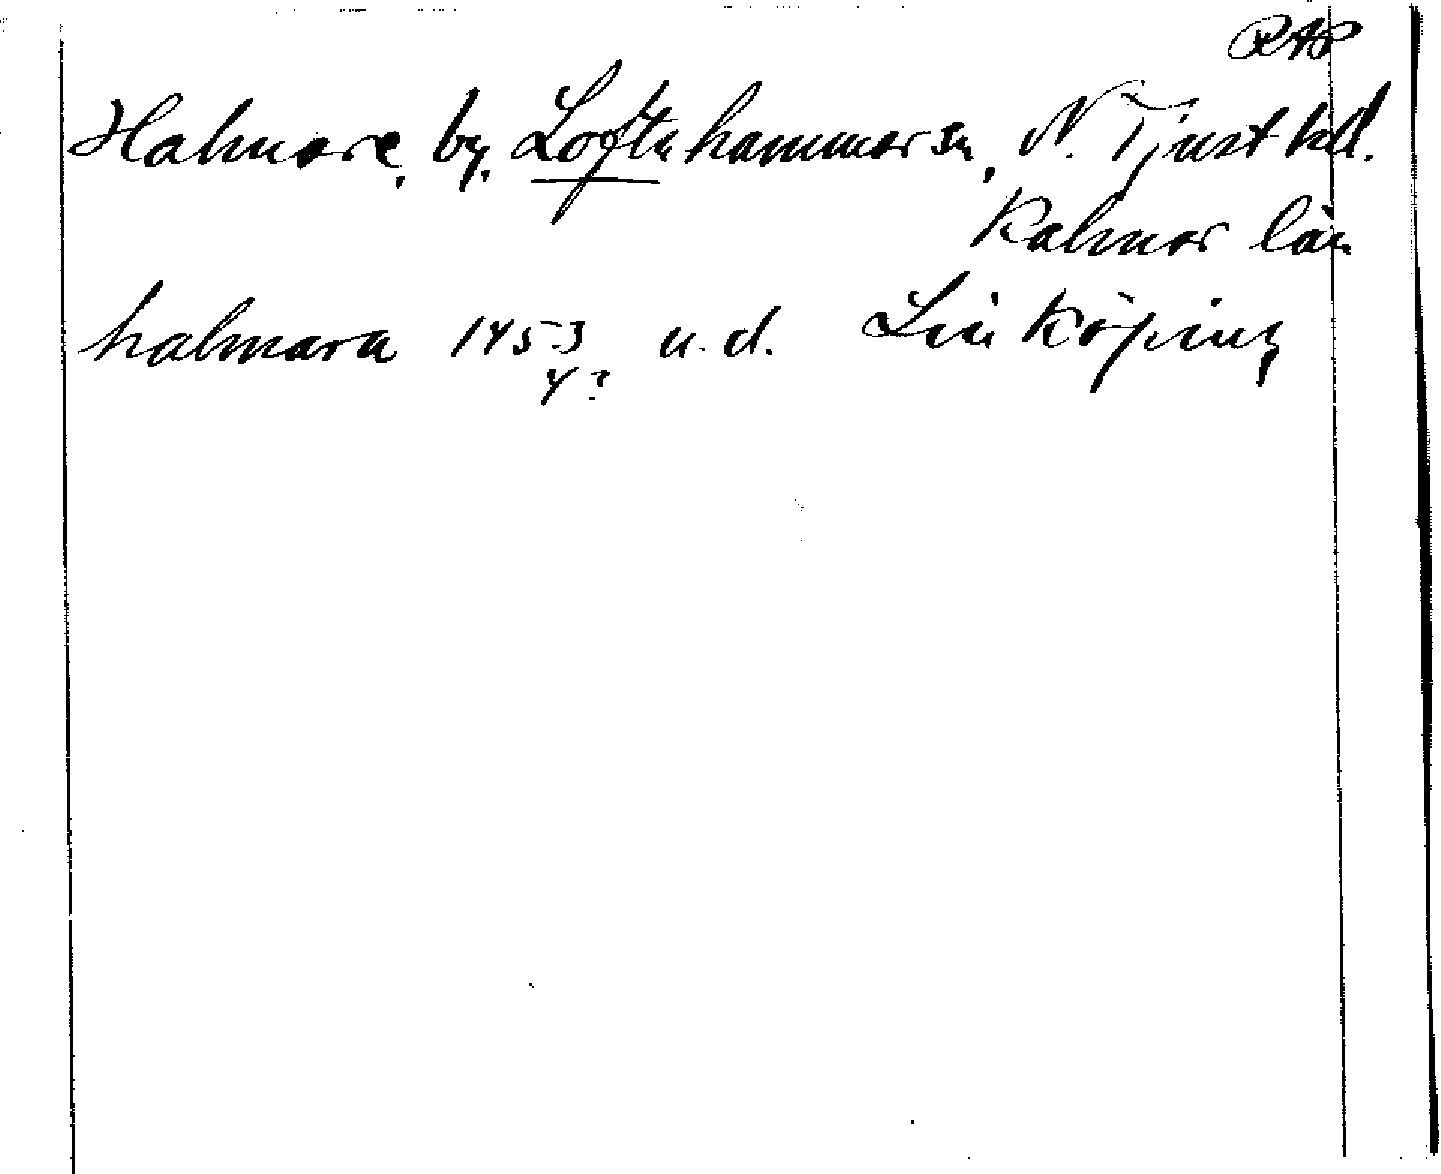 RAP
Halmare, by, Loftahammar sn, N. Tjust hd.
Kalmar län
halmara 1453 u.d. Linköping
4?